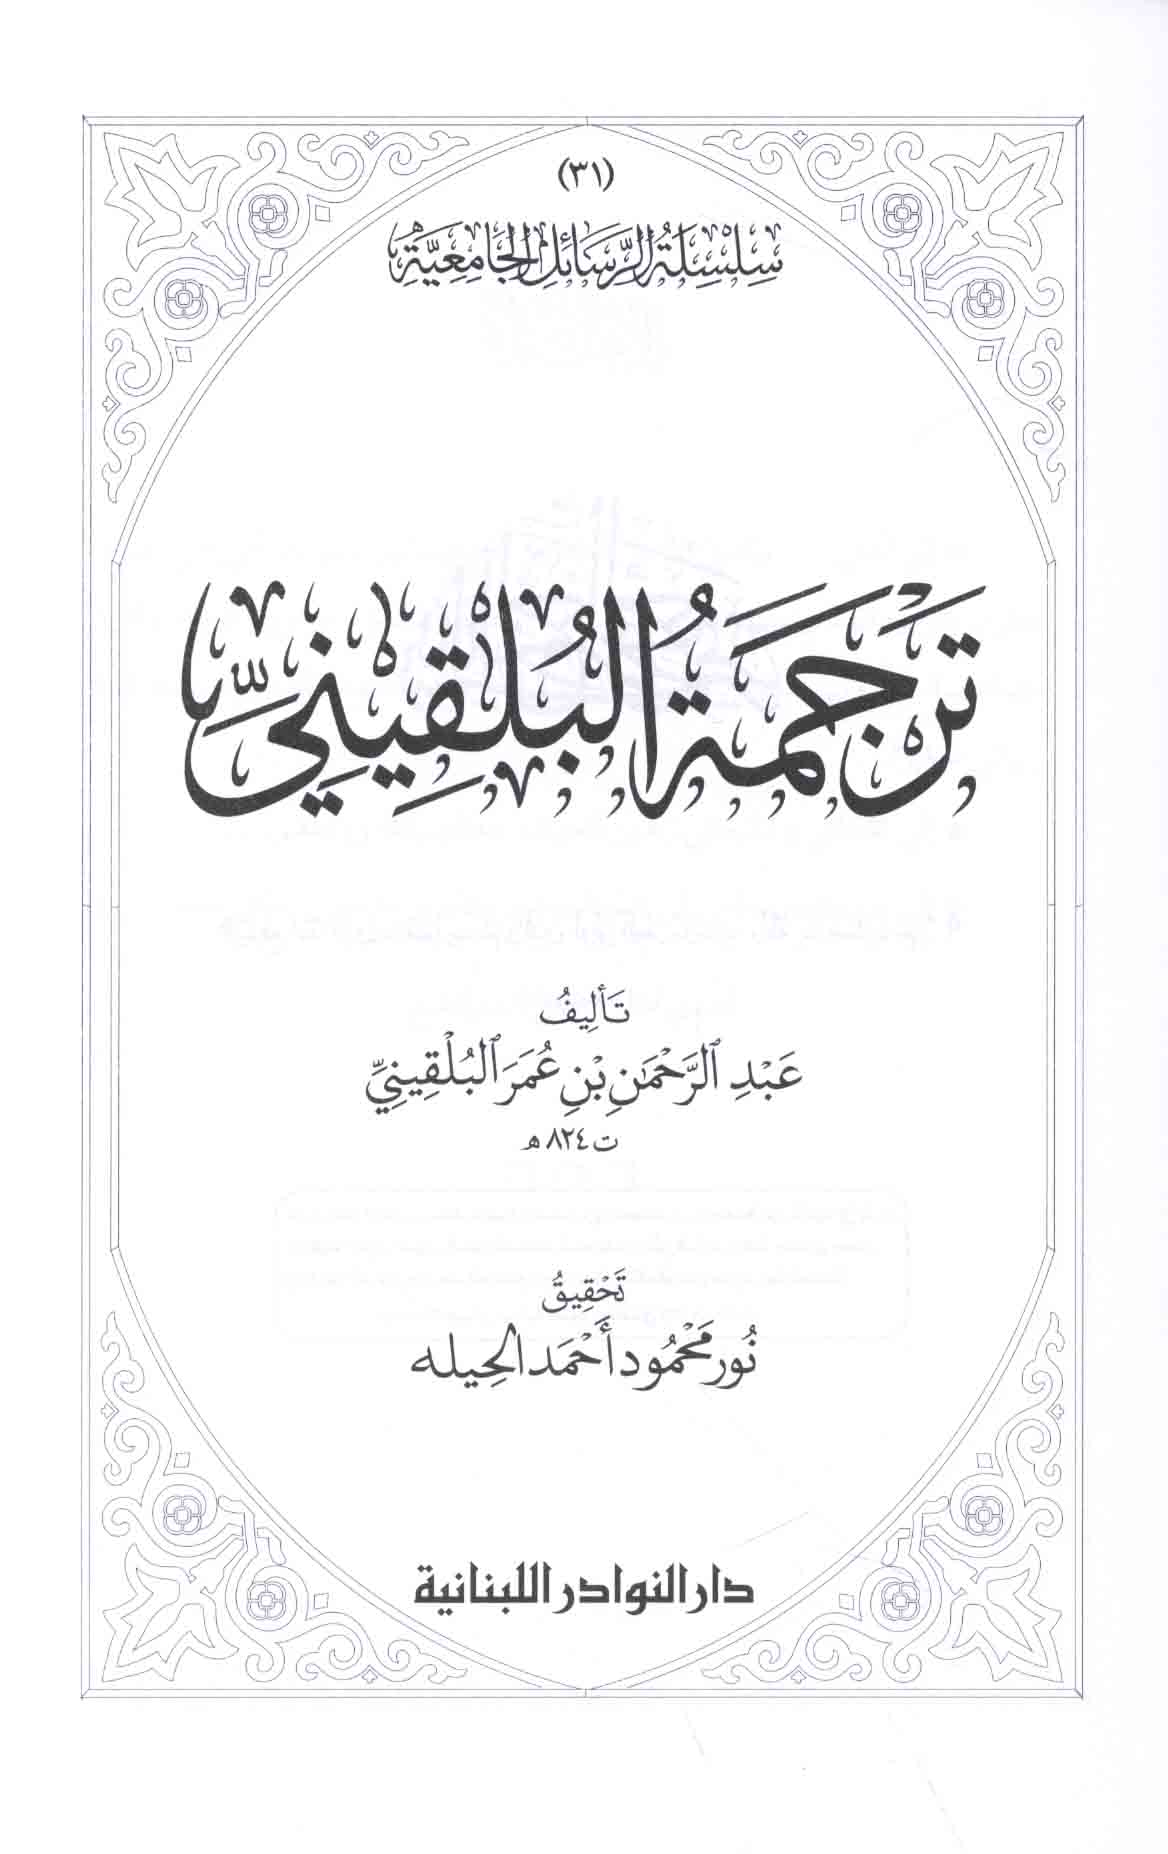 (٣١)
سِلْسِلَةُ الرَّسَائِلِ الجَامِعِيَّةِ
تَرْجَمَةُ البُلْقِينِيِّ
تَأْلِيفُ
عَبْدِ الرَّحْمٰنِ بْنِ عُمَرَ البُلْقِينِيِّ
ت ٨٢٤ هـ
تَحْقِيقُ
نُور مَحْمُود أَحْمَد الحِيله
دار النوادر اللبنانية